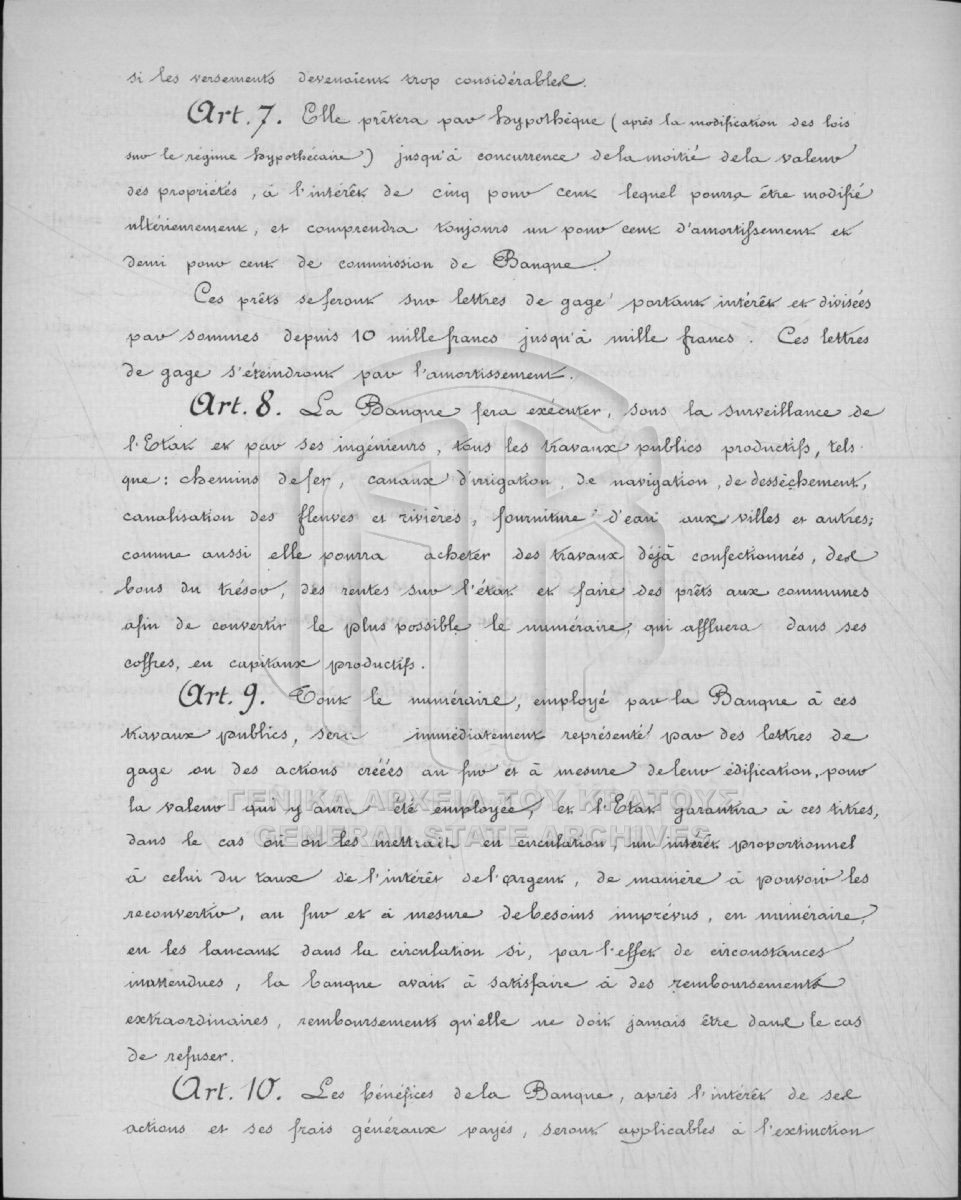 si les versements devenaient trop considérables.
Art. 7. Elle prêtera par hypothèque (après la modification des lois
sur le régime hypothécaire) jusqu'à concurrence de la moitié de la valeur
des propriétés, à l'intérêt de cinq pour cent lequel pourra être modifié
ultérieurement, et comprendra toujours un pour cent d'amortissement et
demi pour cent de commission de Banque.
Ces prêts se feront sur lettres de gage portant intérêt et divisées
par sommes depuis 10 mille francs jusqu'à mille francs. Ces lettres
de gage s'éteindront par l'amortissement.
Art. 8. La Banque fera exécuter, sous la surveillance de
l'Etat et par ses ingénieurs, tous les travaux publics productifs, tels
que: chemins de fer, canaux d'irrigation, de navigation, de dessèchement,
canalisation des fleuves et rivières, fourniture d'eau aux villes et autres;
comme aussi elle pourra acheter des travaux déjà confectionnés, des
bons du trésor, des rentes sur l'état et faire des prêts aux communes
afin de convertir le plus possible le numéraire, qui affluera dans ses
coffres, en capitaux productifs.
Art. 9. Tout le numéraire, employé par la Banque à ces
travaux publics, sera immédiatement représenté par des lettres de
gage ou des actions créées au fur et à mesure de leur édification, pour
la valeur qui y aura été employée, et l'Etat garantira à ces titres,
ΓΕΝΙΚΑ ΑΡΧΕΙΑ ΤΟΥ ΚΡΑΤΟΥΣ
GENERAL STATE ARCHIVES
dans le cas où on les mettrait en circulation, un intérêt proportionnel
à celui du taux de l'intérêt de l'argent, de manière à pouvoir les
reconvertir, au fur et à mesure de besoins imprévus, en numéraire,
en les lancant dans la circulation si, par l'effet de circonstances
inattendues, la banque avait à satisfaire à des remboursements
extraordinaires, remboursements qu'elle ne doit jamais être dans le cas
de refuser.
Art. 10. Les bénéfices de la Banque, après l'intérêt de ses
actions et ses frais généraux payés, seront applicables à l'extinction